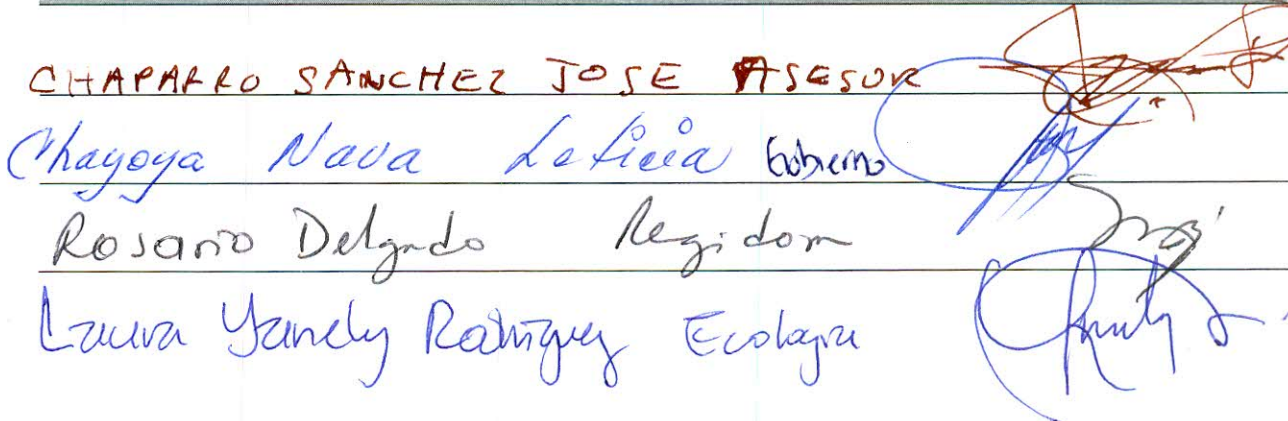 CHAPARRO SANCHEZ JOSE ASESOR
Chayoya Nava Leticia Gobierno
Rosario Delgado Regidora
Laura Yanely Rodriguez Ecologia